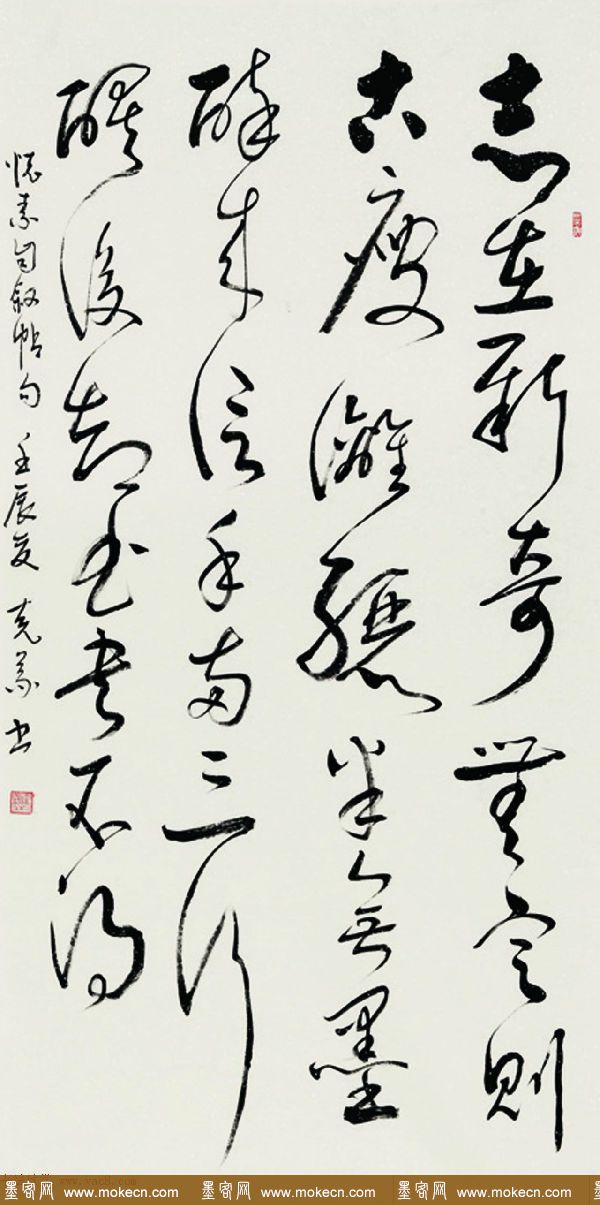 志在新奇無定則
古瘦灕驪半無墨
醉來信手兩三行
醒後却書書不得
懷素自叙帖句 壬辰夏 克 書
墨客网 www.mokecn.com 墨客网 www.mokecn.com 墨客网 www.mokecn.com